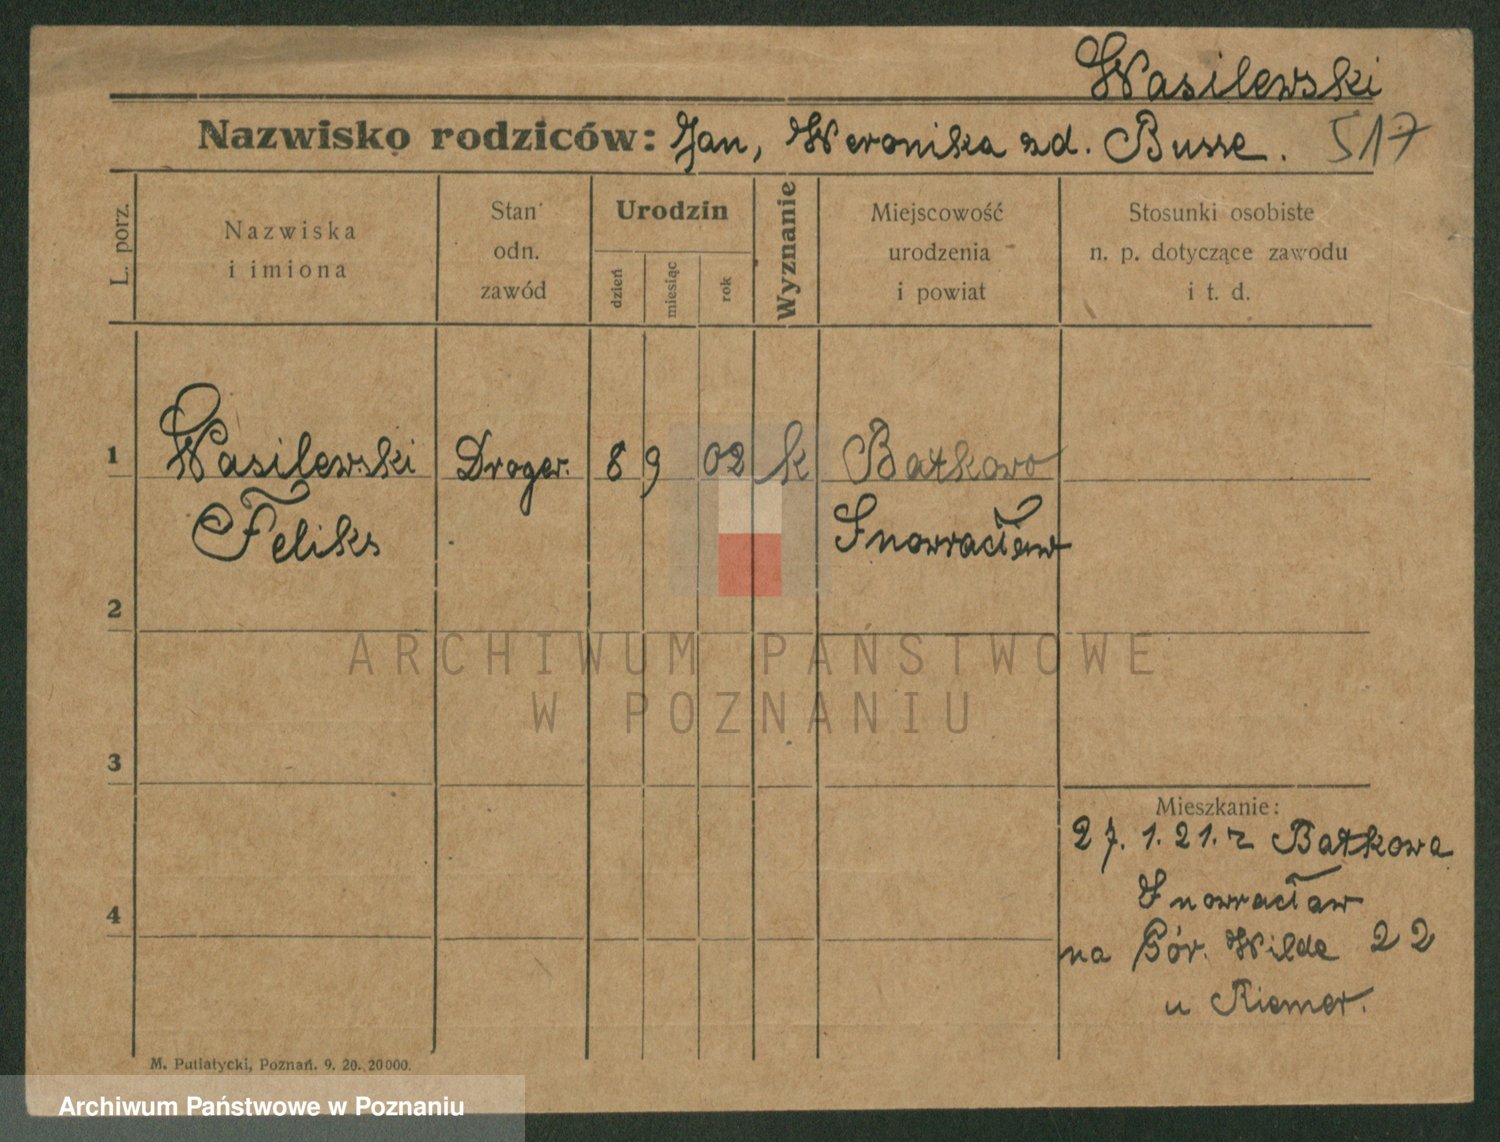 Wasilewski
Nazwisko rodziców: Jan, Weronika zd. Busse. 517
L. porz.
Nazwiska
i imiona
Stan
odn.
zawód
Urodzin
dzień
miesiąc
rok
Wyznanie
Miejscowość
urodzenia
i powiat
Stosunki osobiste
n. p. dotyczące zawodu
i t. d.
1 Wasilewski Droger. 8 9 02 k Batkowo
Feliks Inowracław
2
3
4
Mieszkanie:
27. 1. 21. z Batkowa
Inowracław
na Gór. Wilde 22
u Riemer.
M. Putiatycki, Poznań. 9. 20. 20000.
ARCHIWUM PAŃSTWOWE
W POZNANIU
Archiwum Państwowe w Poznaniu